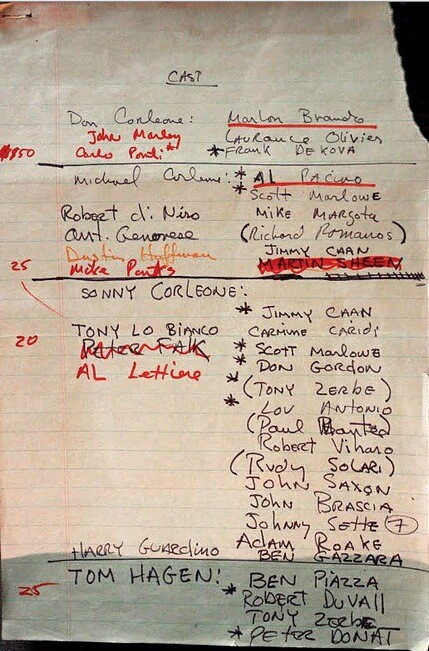 CAST
Don Corleone: Marlon Brando
John Marley Laurance Olivier
$150 Carlo Ponti * * FRANK DE KOVA
Michael Corleone: * AL PACINO
* Scott Marlowe
Robert di Niro Mike Margota
Ant. Genovese (Richard Romanos)
Dustin Hoffman JIMMY CAAN
25 Mike Parks MARTIN SHEEN
SONNY CORLEONE:
* JIMMY CAAN
TONY LO BIANCO CARMINE CARIDI
20 Peter FALK * SCOTT MARLOWE
AL Lettiere * DON GORDON
* (TONY ZERBE)
* LOU ANTONIO
(Paul Banteo)
Robert Viharo
(Rudy SOLARI)
JOHN SAXON
John BRASCIA
Johnny SETTE 7
Adam ROAKE
HARRY GUARDINO BEN GAZZARA
TOM HAGEN: BEN PIAZZA
25 * RObERT DuVAll
TONY ZERBE
* PETER DONAT